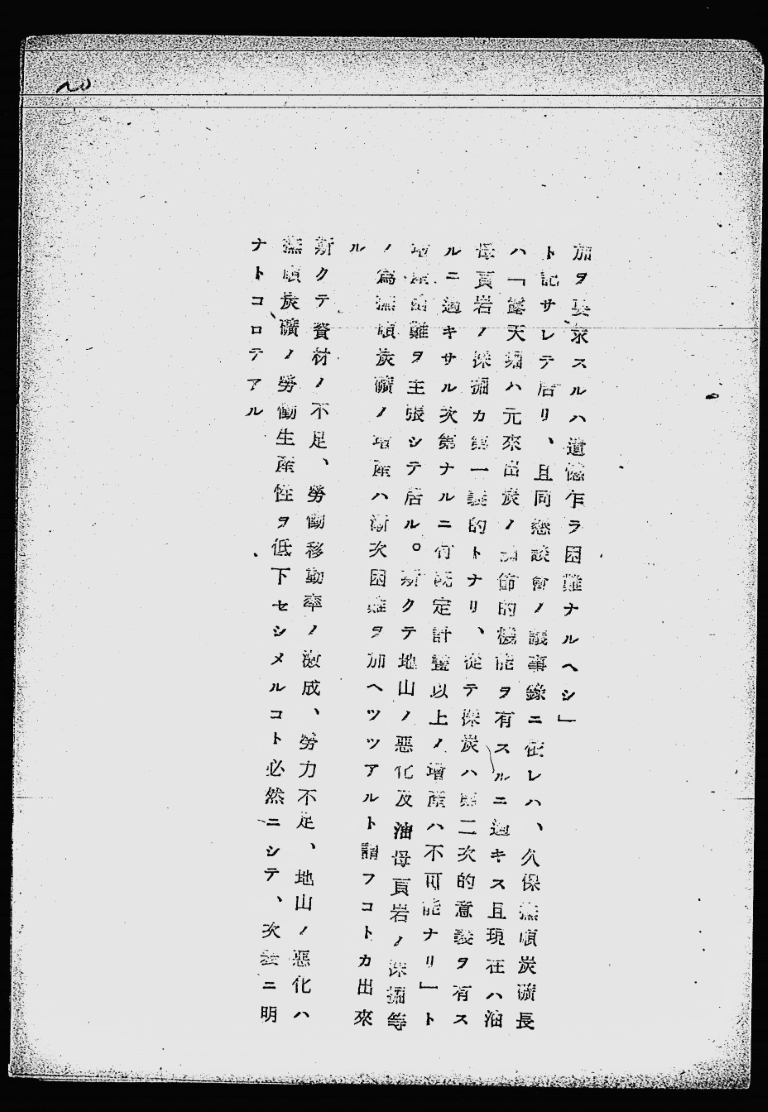 20
加ヲ要求スルハ遺憾乍ラ困難ナルヘシ」
ト記サレテ居リ、且同懇談會ノ議事錄ニ依レハ、久保撫順炭礦長
ハ「露天掘ハ元來出炭ノ調節的機能ヲ有スルニ過キス且現在ハ油
母頁岩ノ採掘カ第一義的トナリ、從テ採炭ハ第二次的意義ヲ有ス
ルニ過キサル次第ナルニ付既定計畫以上ノ增產ハ不可能ナリ」ト
增產困難ヲ主張シテ居ル。斯クテ地山ノ惡化及油母頁岩ノ採掘等
ノ爲撫順炭礦ノ增產ハ漸次困難ヲ加ヘツツアルト謂フコトカ出來
ル
斯クテ資材ノ不足、勞働移動率ノ激成、勞力不足、地山ノ惡化ハ
撫順炭礦ノ勞働生產性ヲ低下セシメルコト必然ニシテ、次表ニ明
ナトコロテアル